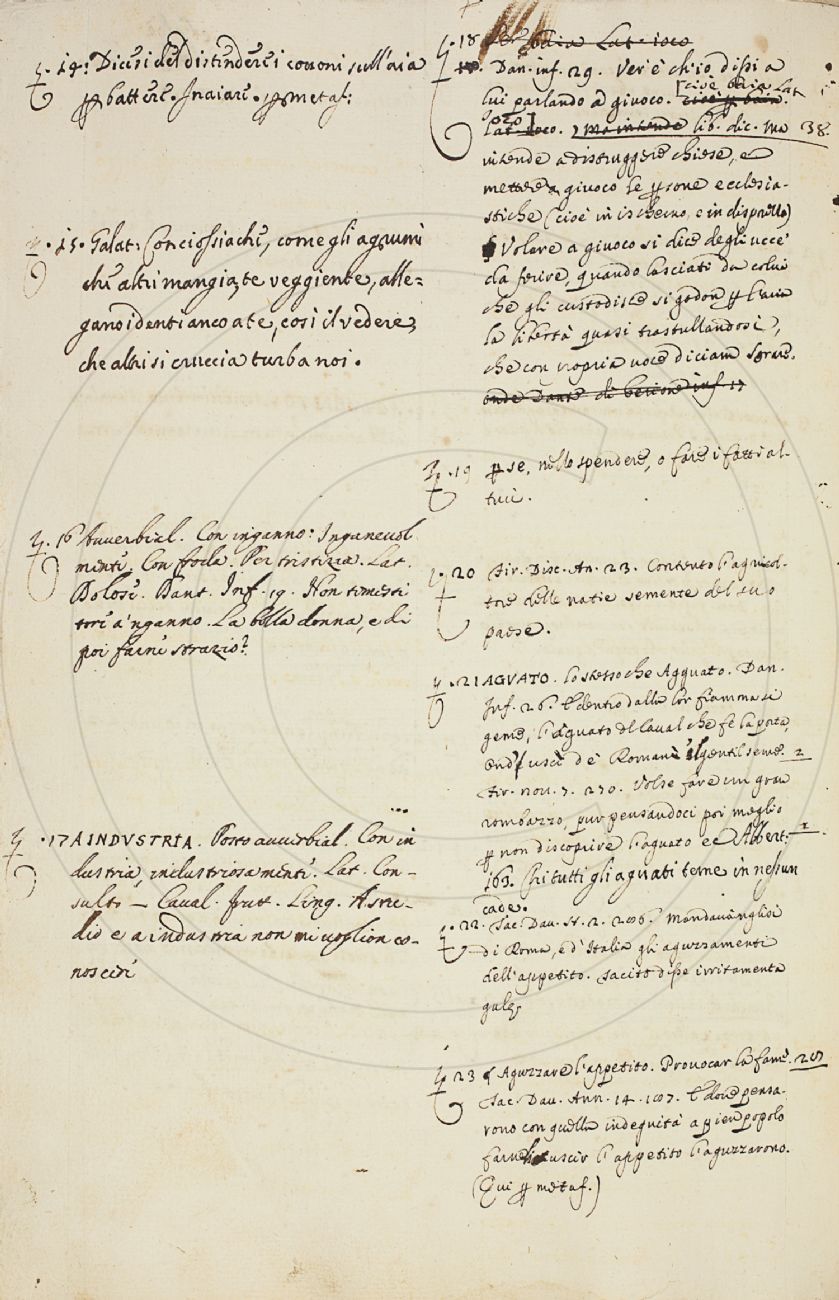 14: Dicesi del distendere i covoni sull'aia
ꝑ battere. Inaiare. ꝑ metaf:
15. Galat: Conciossiachè, come gli agrumi
che altri mangia, te veggiente, alle=
gano i denti anco a te, così il vedere,
che altri si cruccia turba noi.
16 Avverbial. Con inganno: Ingannevol
mente. Con froda. Per tristizia. Lat.
Dolose. Dant. Inf. 19. Non temesti
torre a 'nganno. La bella donna, e di
poi farne strazio?
17 AINDVSTRIA. Posto avverbial. Con in
dustria, industriosamente. Lat. Con-
sulto — Caval. frut. ling. Assedio
e a industria non mi voglion co-
noscere
18 baia Lat. ioco
Dan. inf. 29. Ver'è ch'io dissi a
lui parlando a giuoco. [cioè baia Lat.
ioco] lib. dic. ma 38.
intende a distruggere chiese, e
mettere a giuoco le ꝑsone ecclesia-
stiche (cioè in ischerno, e in disprezzo)
Volare a giuoco si dice degli ucce'
da ferire, quando lasciati da colui
che gli custodisce si godon ꝑ l'aria
la libertà quasi trastullandosi,
che con propria voce diciam
onde Dante di Gerione inf. 17
19 ꝑ se, nello spendere, o fare i fatti al-
trui.
20 Tir. Disc. An. 23. Contento l'agricol-
tore delle natie semente del suo
paese.
21 AGVATO. lo stesso che Agguato. Dan.
Inf. 26. E dentro dalla lor fiamma si
geme, l'aguato del caval che fe la porta,
ond' uscì de' Romani 'l gentil seme. 2
nov. 7. 270. Volse fare un gran
rombazzo, pur pensandoci poi meglio
ꝑ non discoprire l'aguato ec Albert: 2
163. Chi tutti gli aguati teme in nessun
cade.
22. Tac. Dav. St. 2. 286. Mandavanglisi
di Roma, e d'Italia gli aguzzamenti
dell'appetito. Tacito disse irritamenta
gulę
23 Aguzzare l'appetito. Provocar la fame.
Tac. Dav. Ann. 14. 187. E dove pensa-
rono con quella indegnità a ꝑ ien popolo
farne uscir l'appetito l'aguzzarono.
(Qui ꝑ metaf.)